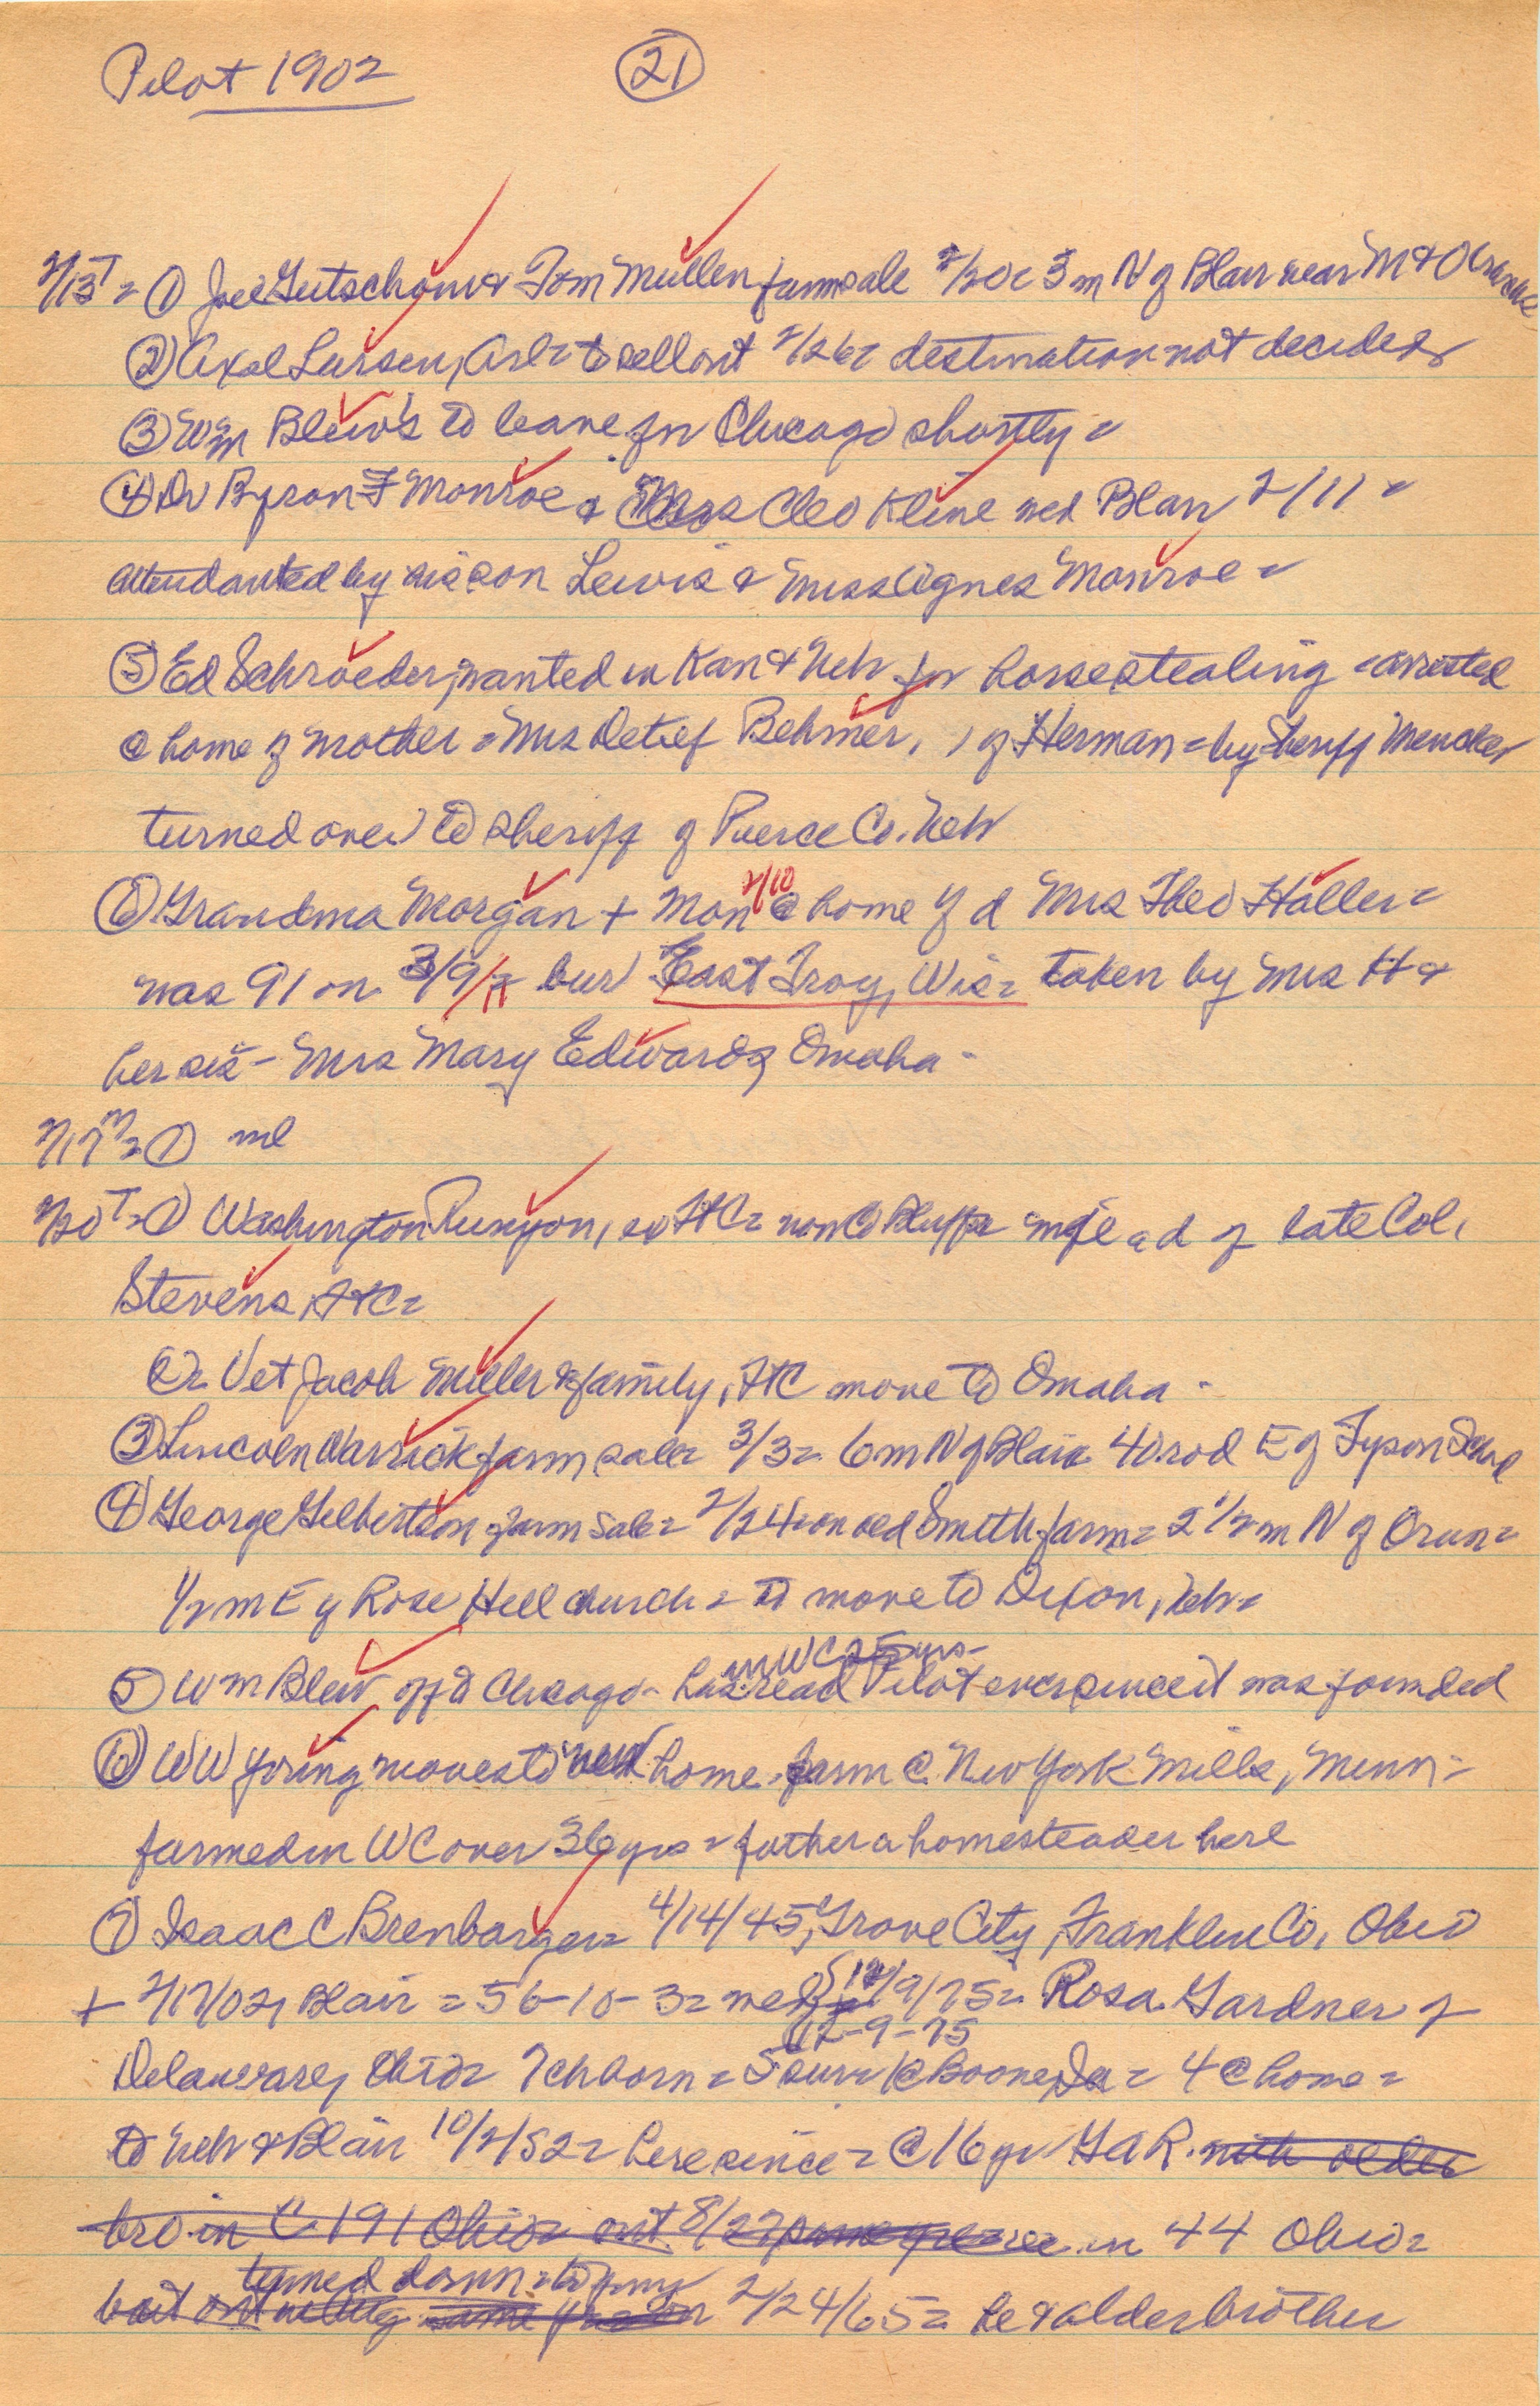 Pilot 1902 (21)
2/13 T = ① Joe Gutschow & Tom Mullen farm sale 2/20 = 3 m N of Blair near M & O
② Axel Larsen, Arl = to sell out 2/26 = destination not decided
③ Wm Blew's to leave for Chicago shortly =
④ Dr Byron F Monroe & Miss Cleo Kline wed Blair 2/11 =
attendanted by his son Lewis & Miss Agnes Monroe =
⑤ Ed Schroeder, wanted in Kan & Neb for horse stealing = arrested
@ home of mother = Mrs Detlef Behmer, of Herman = by Sheriff Mencke
turned over to sheriff of Pierce Co. Neb
⑥ Grandma Morgan + Mon 2/10 @ home of d Mrs Theo Haller =
was 91 on 3/9/11 bur East Troy, Wis = taken by Mrs H &
her sis - Mrs Mary Edwards, Omaha -
2/17 M = ① nil
2/20 T = ① Washington Runyon, ex FtC = now C Bluffs mgle a d of late Col.
Stevens, FtC =
② = Vet Jacob Miller & family, FtC move to Omaha -
③ Lincoln Warrick farm sale = 3/3 = 6 m N of Blair 40 rod E of Tyson
④ George Gilbertson farm sale = 2/24 = on old Smith farm = 2 1/2 m N of Orum =
1/2 m E of Rose Hill church = to move to Dixon, Neb =
in WC 25 yrs -
⑤ Wm Blew off to Chicago - has read Pilot ever since it was founded
⑥ WW Young moves to new home farm @ New York Mills, Minn =
farmed in WC over 36 yrs = father a homesteader here
⑦ Isaac C Brenbarger = 4/14/45, Grove City, Franklin Co, Ohio
+ 2/17/02, Blair = 56-10-3 = wed 12/9/75 = Rosa Gardner of
12-9-75
Delaware, Ohio = 7 ch born = 5 surv @ Boone, Ia = 4 @ home =
to Neb & Blair 10/2/82 = here since = @ 16 yr GAR with older
bro in C 191 Ohio = out 8/27 same yr = in 44 Ohio =
turned down = to young
but 2/24/65 = he & older brother